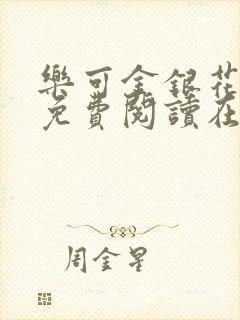 樂可金銀花
免費閱讀在
周金星